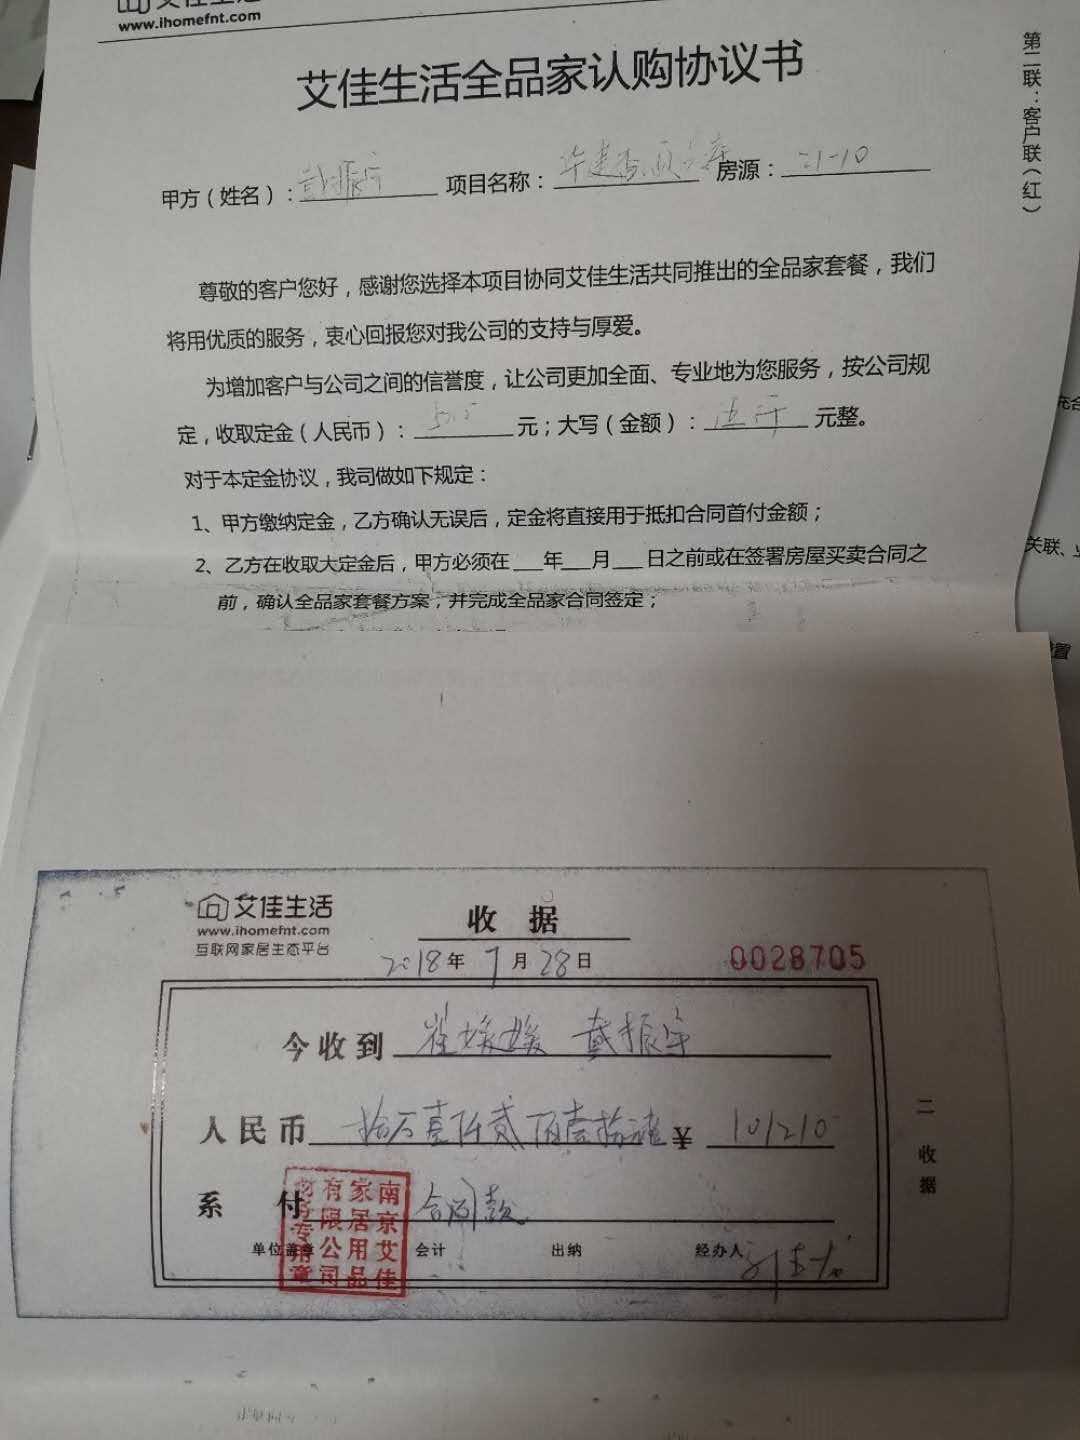 艾佳生活
www.ihomefnt.com
第二联：客户联（红）
艾佳生活全品家认购协议书
甲方（姓名）：戴振宇 项目名称： 房源：21-10
尊敬的客户您好，感谢您选择本项目协同艾佳生活共同推出的全品家套餐，我们
将用优质的服务，衷心回报您对我公司的支持与厚爱。
为增加客户与公司之间的信誉度，让公司更加全面、专业地为您服务，按公司规
定，收取定金（人民币）： 元；大写（金额）：伍仟 元整。
对于本定金协议，我司做如下规定：
1、甲方缴纳定金，乙方确认无误后，定金将直接用于抵扣合同首付金额；
2、乙方在收取大定金后，甲方必须在___年___月___日之前或在签署房屋买卖合同之
前，确认全品家套餐方案，并完成全品家合同签定；
关联、
艾佳生活
www.ihomefnt.com
互联网家居生态平台
收 据
2018年7月28日
0028705
今收到 崔媛媛 戴振宇
人民币 拾万壹仟贰佰壹拾 ¥ 101210
系 付 合同款
单位盖章 会计 出纳 经办人
南京艾佳家居用品有限公司财务专用章
二 收据